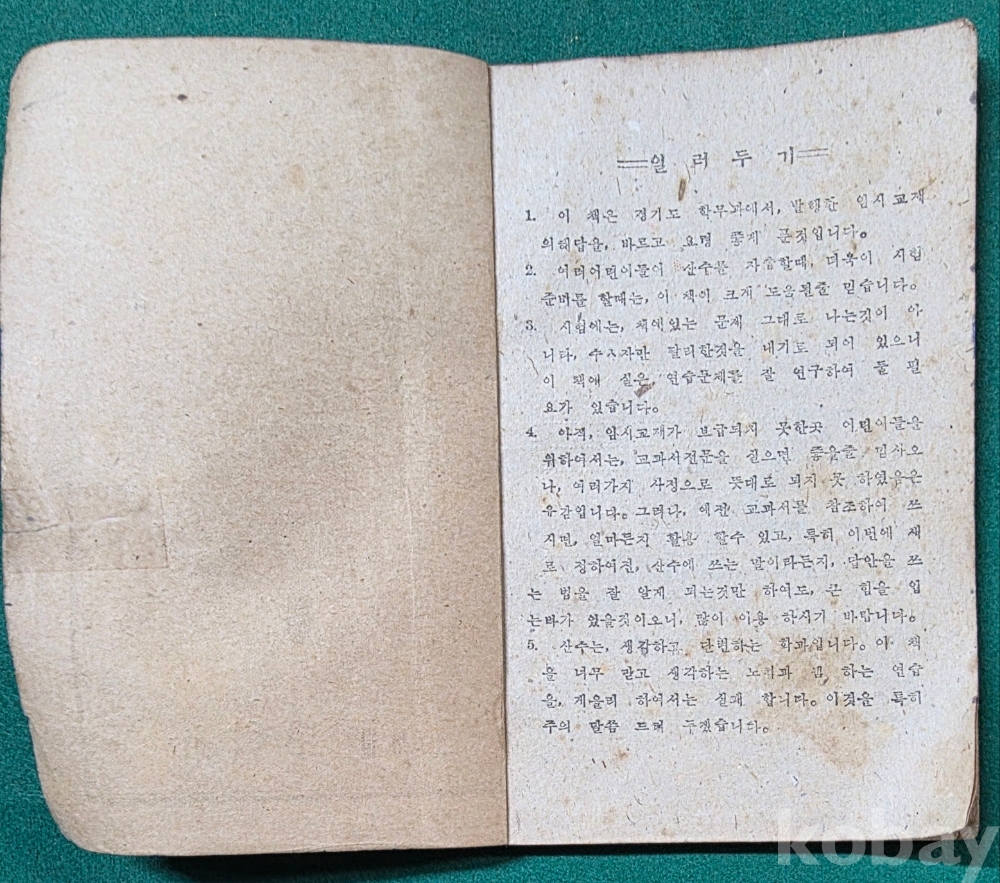 일 러 두 기
1. 이 책은 경기도 학무과에서, 발행한 임시교재
의해답을, 바르고 요령 좋게 푼것입니다。
2. 여러어린이들이 산수를 자습할때, 더욱이 시험
준비를 할때는, 이 책이 크게 도움될줄 믿습니다。
3. 시험에는, 책에있는 문제 그대로 나는것이 아
니라, 수ㅅ자만 달리한것을 내기도 되어 있으니
이 책에 실은, 연습문제를 잘 연구하여 둘 필
요가 있습니다。
4. 아직, 임시교재가 보급되지 못한곳 어린이들을
위하여서는, 교과서전문을 실으면 좋을줄 믿사오
나, 여러가지 사정으로 뜻대로 되지 못 하였음은
유감입니다。그러나, 예전 교과서를 참조하여 쓰
시면, 얼마든지 활용 할수 있고, 특히 이번에 새
로 정하여진, 산수에 쓰는 말이라든지, 답안을 쓰
는 법을 잘 알게 되는것만 하여도, 큰 힘을 입
는바가 있을것이오니, 많이 이용 하시기 바랍니다。
5. 산수는, 생각하고 단련하는 학과입니다。이 책
을 너무 믿고 생각하는 노력과 셈 하는 연습
을, 게을리 하여서는 실패 합니다。이것을 특히
주의 말씀 드려 두겠습니다。
kobay